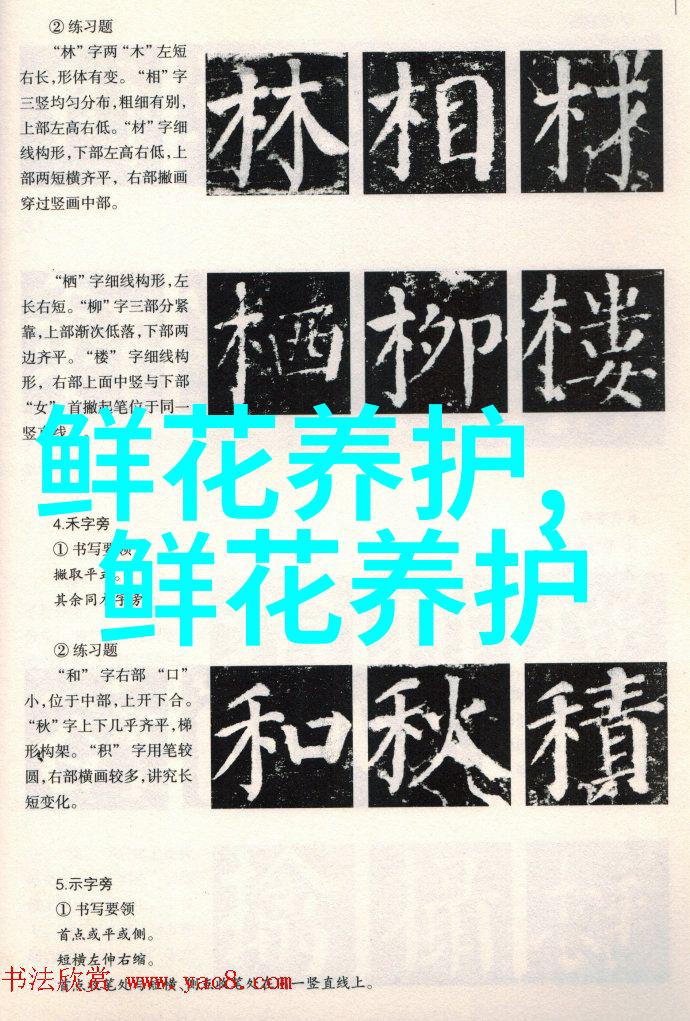 ② 练习题
“林”字两“木”左短
右长,形体有变。“相”字
三竖均匀分布,粗细有别,
上部左高右低。“材”字细
线构形,下部左高右低,上
部两短横齐平,右部撇画
穿过竖画中部。
林 相 材
“栖”字细线构形,左
长右短。“柳”字三部分紧
靠,上部渐次低落,下部两
边齐平。“楼”字细线构
形,右部上面中竖与下部
“女”首撇起笔位于同一
竖直线
栖 柳 楼
鲜花养护,
鲜花养护
4.禾字旁
① 书写要领
撇取平式。
其余同木字旁
② 练习题
“和”字右部“口”
小,位于中部,上开下合。
“秋”字上下几乎齐平,梯
形构架。“积”字用笔较
圆,右部横画较多,讲究长
短变化。
和 秋 積
5.示字旁
① 书写要领
首点或平或侧。
短横左伸右缩。
首点收笔处与短横、 一竖直线上。
书法欣赏 www.yac8.com